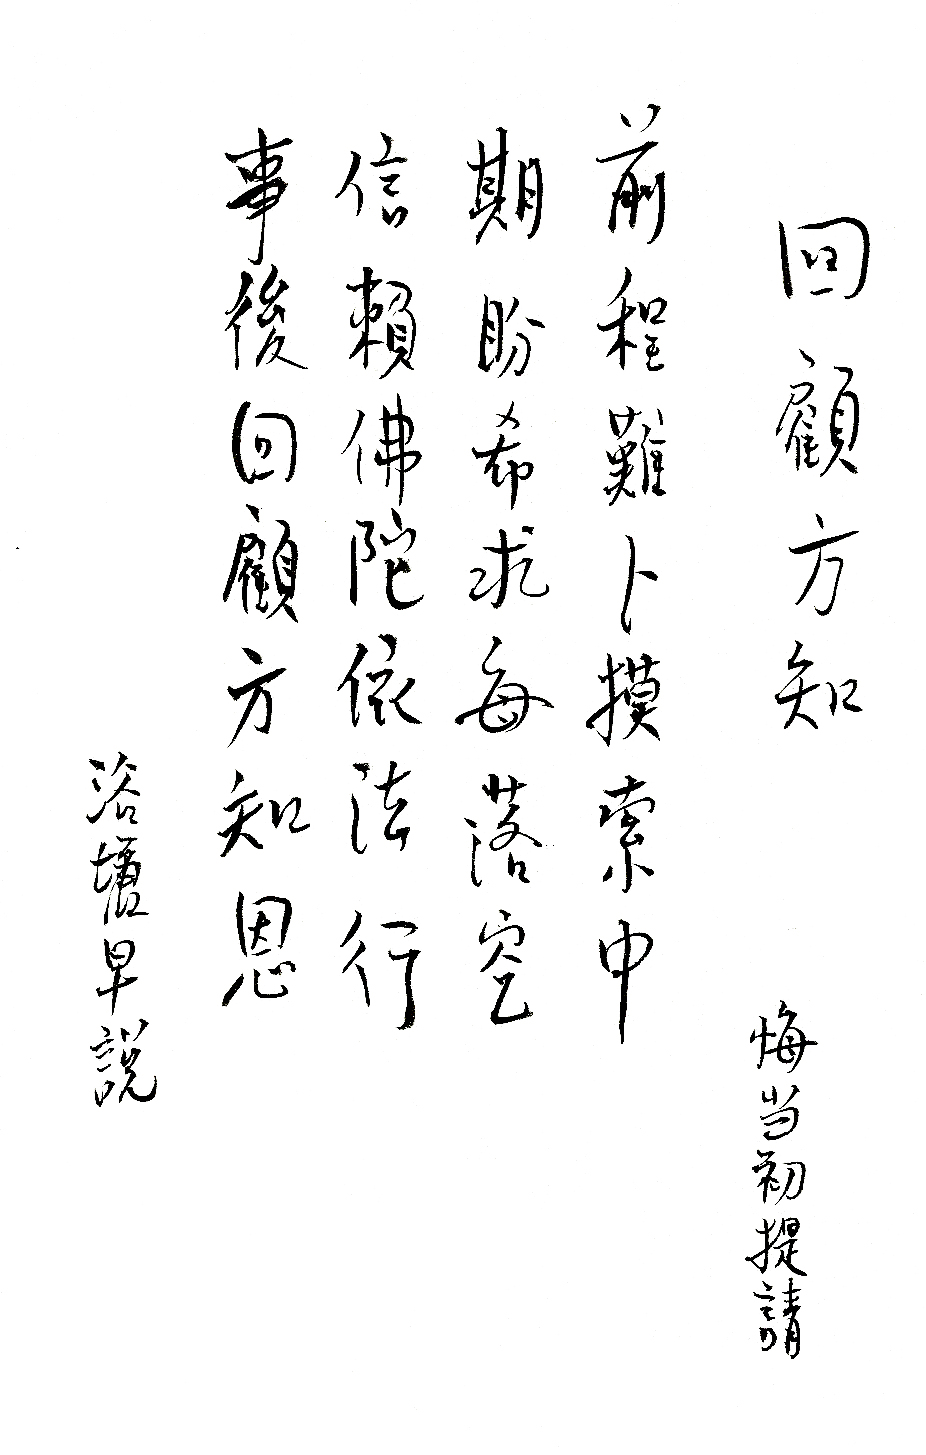 回顧方知
悔当初提請
前程難卜摸索中
期盼希求每落空
信賴佛陀依法行
事後回顧方知恩
浴壇早說